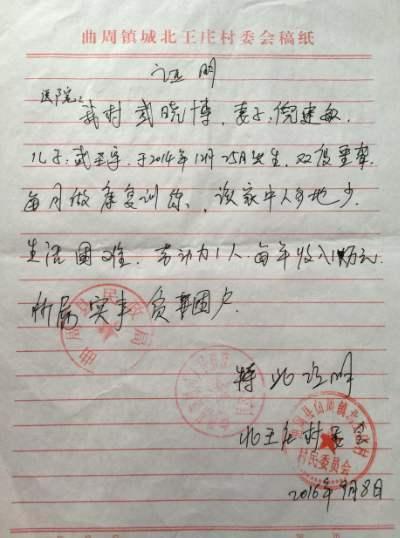 曲周镇城北王庄村委会稿纸
证明
医院:
我村武晓博,妻子:倪建敏,
儿子:武圣宇,于2014年12月25日出生,双侧重聋
每月做康复训练,该家中人多地少
生活困难,劳动力1人,每年收入1万元
所属实事 负贫困户
特此证明
北王庄村委会
村民委员会
2016年9月8日